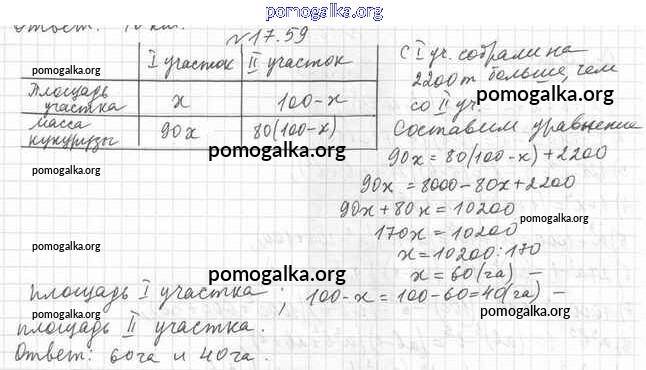 pomogalka.org
Ответ: 40 км.
№17.59
I участок II участок
Площадь участка x 100-x
масса кукурузы 90x 80(100-x)
С I уч. собрали на
2200т больше, чем
со II уч.
Составим уравнение
90x = 80(100-x)+2200
90x = 8000-80x+2200
90x+80x = 10200
170x = 10200
x = 10200:170
x = 60(га) –
площадь I участка ; 100-x = 100-60=40(га) –
площадь II участка.
Ответ: 60га и 40га.
pomogalka.org
pomogalka.org
pomogalka.org
pomogalka.org
pomogalka.org
pomogalka.org
pomogalka.org
pomogalka.org
pomogalka.org
pomogalka.org